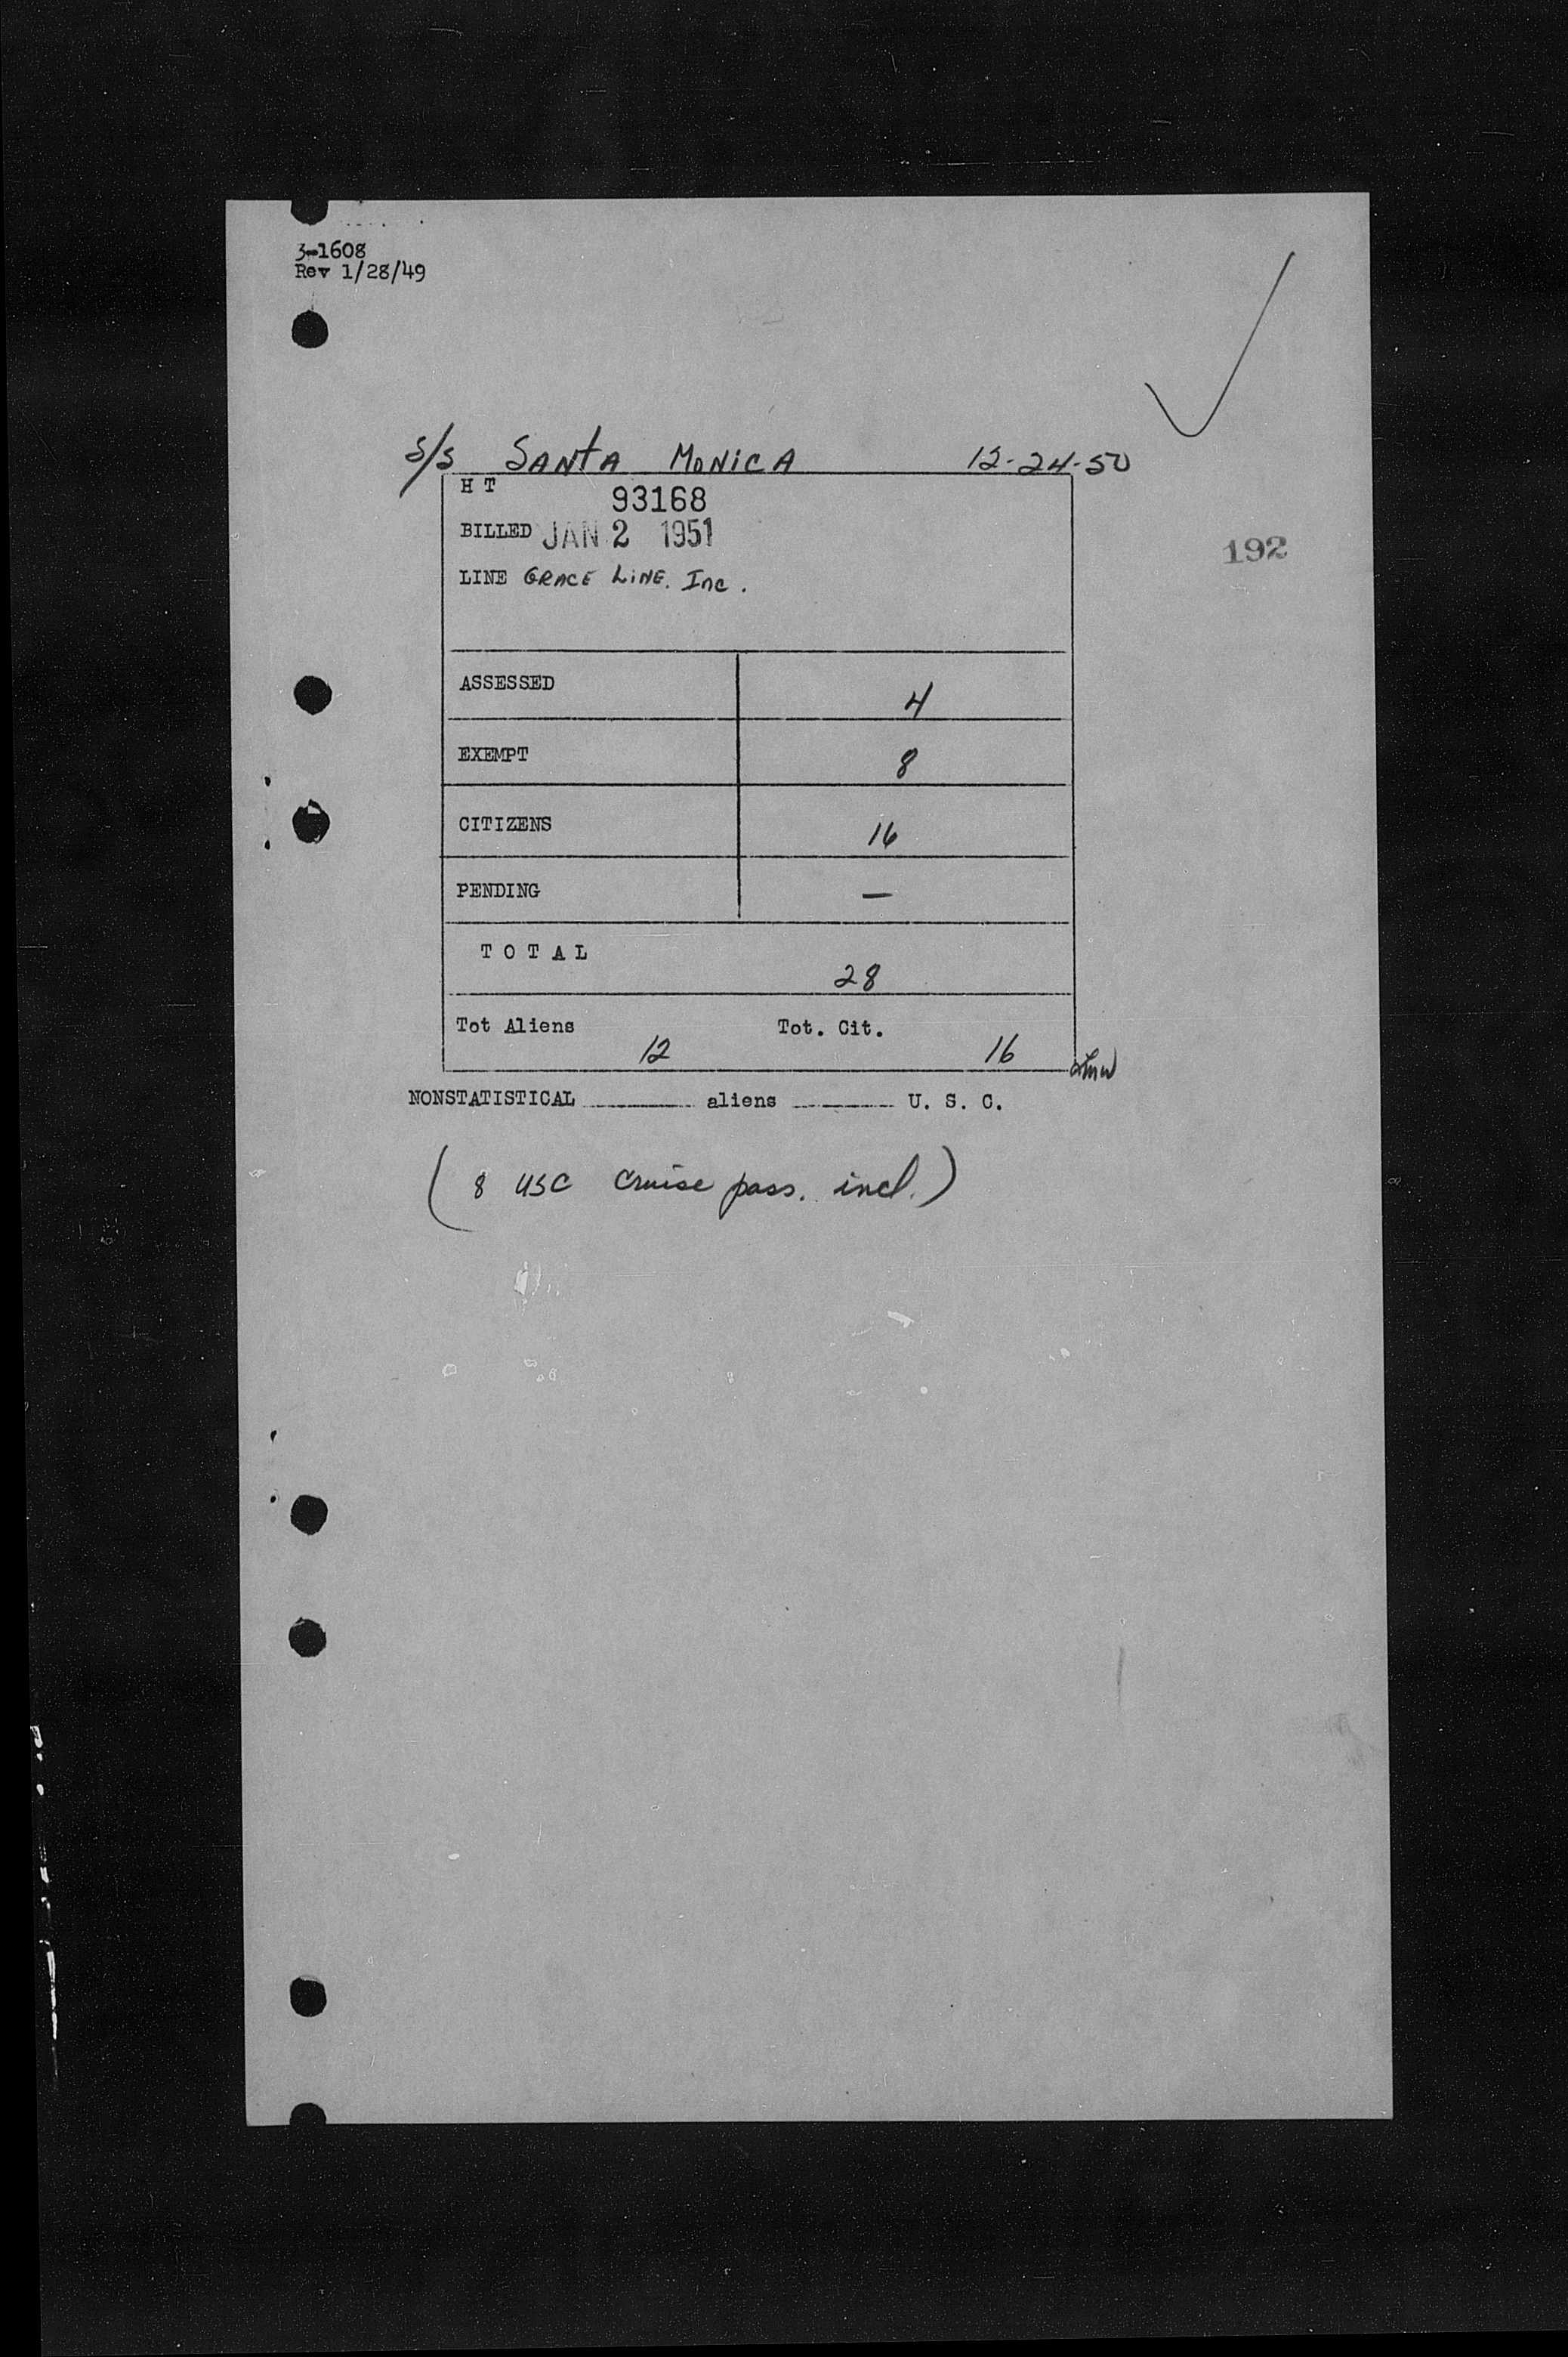 3-1608
Rev 1/28/49
S/S SANTA MONICA 12-24-50
H T 93168
BILLED JAN 2 1951
192
LINE GRACE LINE. Inc.
ASSESSED 4
EXEMPT 8
CITIZENS 16
PENDING —
T O T A L 28
Tot Aliens 12 Tot. Cit. 16
NONSTATISTICAL ________ aliens ________ U. S. C.
( 8 USC Cruise pass. incl. )